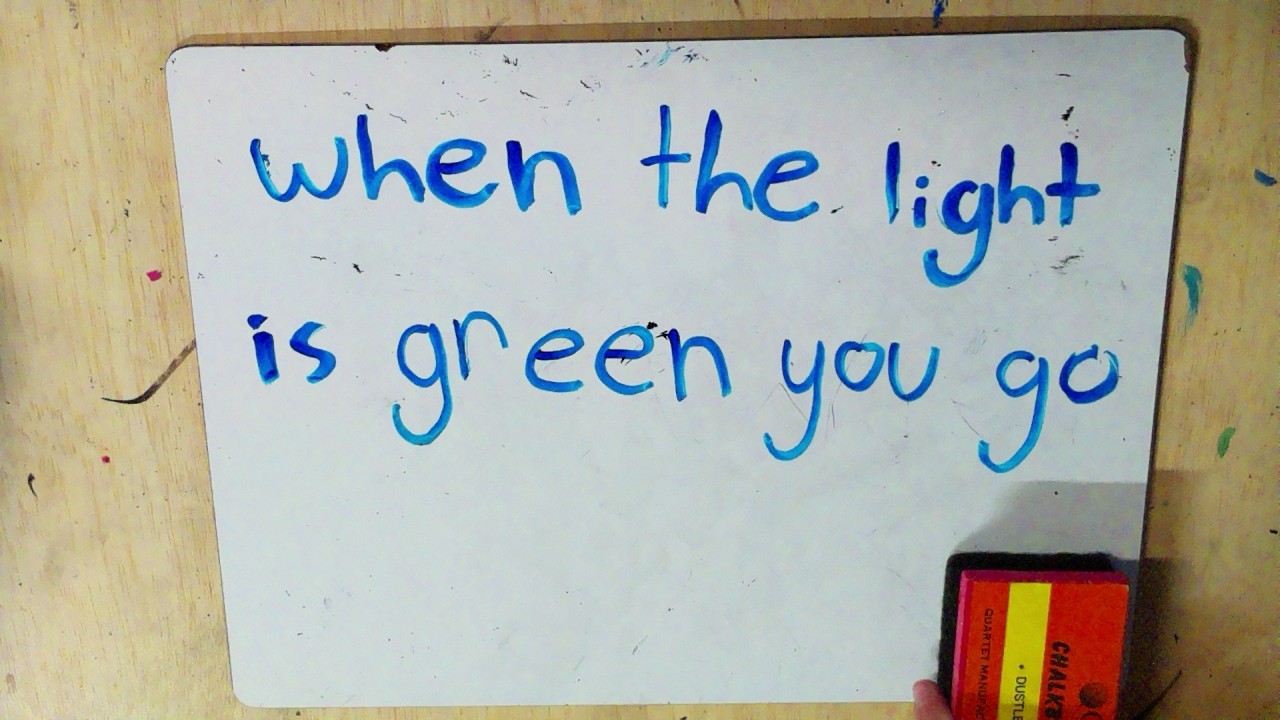 when the light
is green you go
CHALKB
• DUSTLE
QUARTET MANUFAC